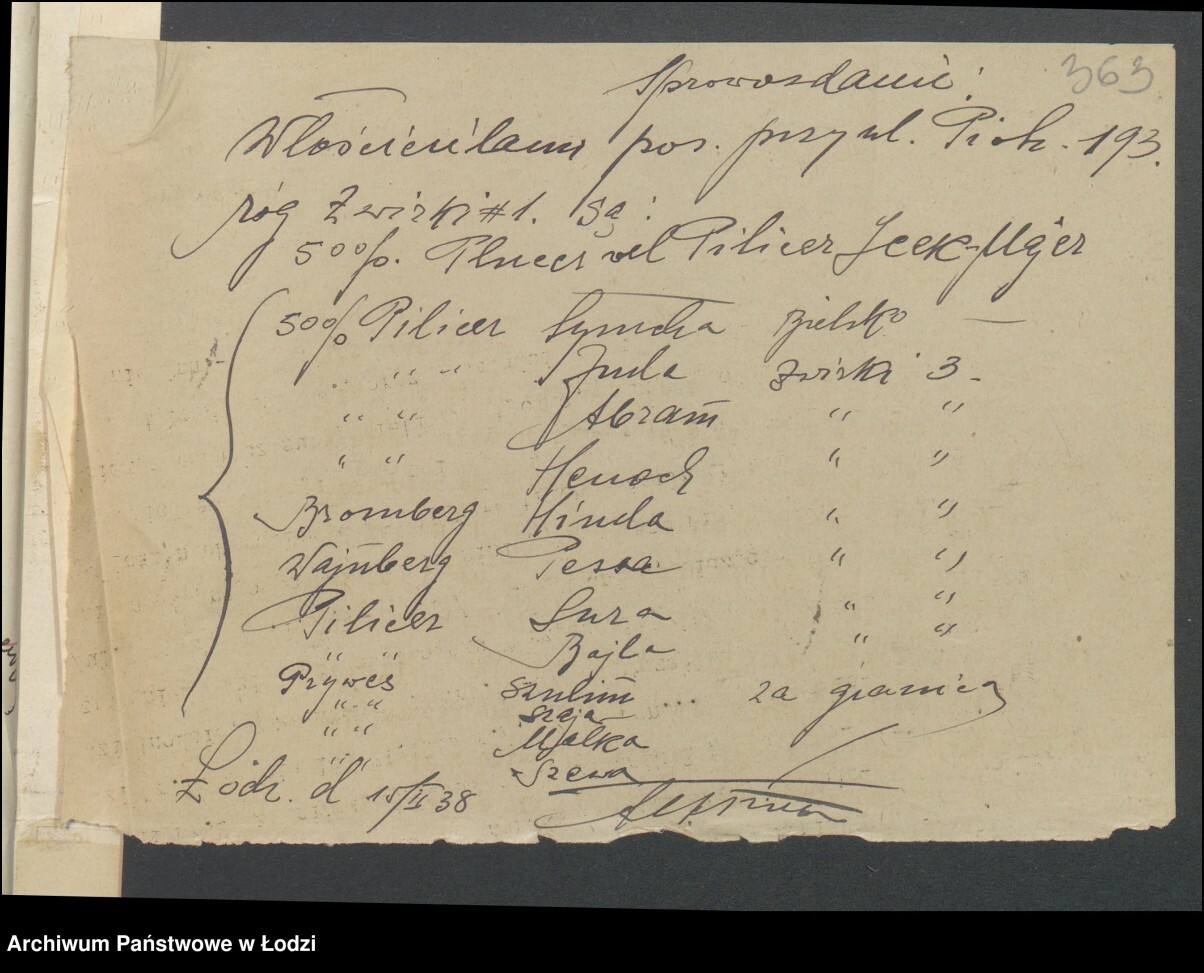 363
Sprawozdanie!
Właścicielami pos. przy ul. Piotr. 193.
róg Zwirki #1. Są:
50%. Plucer vel Pilicer Icek-Majer
50% Pilicer Symcha Bielsko —
" " Juda Zwirki 3 -
" " Abram " "
" " Henoch " "
Bromberg Hinda " "
Wajnberg Pessa " "
Pilicer Sura " "
" " Bajla " "
Prywes Szulim ... za granicą
" " Szaja
" " Malka
" " Szewa
Łódź. d 15/II 38
Archiwum Państwowe w Łodzi